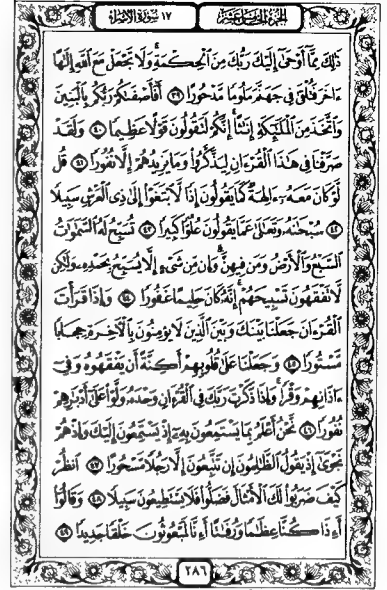 الجزء الخامس عشر
١٧ سورة الإسراء
ذَٰلِكَ مِمَّا أَوْحَىٰ إِلَيْكَ رَبُّكَ مِنَ الْحِكْمَةِ ۗ وَلَا تَجْعَلْ مَعَ اللَّهِ إِلَٰهًا
ءَاخَرَ فَتُلْقَىٰ فِي جَهَنَّمَ مَلُومًا مَّدْحُورًا ﴿٣٩﴾ أَفَأَصْفَىٰكُمْ رَبُّكُم بِالْبَنِينَ
وَاتَّخَذَ مِنَ الْمَلَٰٓئِكَةِ إِنَٰثًا ۚ إِنَّكُمْ لَتَقُولُونَ قَوْلًا عَظِيمًا ﴿٤٠﴾ وَلَقَدْ
صَرَّفْنَا فِي هَٰذَا الْقُرْءَانِ لِيَذَّكَّرُوا وَمَا يَزِيدُهُمْ إِلَّا نُفُورًا ﴿٤١﴾ قُل
لَّوْ كَانَ مَعَهُ ءَالِهَةٌ كَمَا يَقُولُونَ إِذًا لَّابْتَغَوْا إِلَىٰ ذِي الْعَرْشِ سَبِيلًا
﴿٤٢﴾ سُبْحَٰنَهُ وَتَعَٰلَىٰ عَمَّا يَقُولُونَ عُلُوًّا كَبِيرًا ﴿٤٣﴾ تُسَبِّحُ لَهُ السَّمَٰوَٰتُ
السَّبْعُ وَالْأَرْضُ وَمَن فِيهِنَّ ۚ وَإِن مِّن شَيْءٍ إِلَّا يُسَبِّحُ بِحَمْدِهِ وَلَٰكِن
لَّا تَفْقَهُونَ تَسْبِيحَهُمْ ۗ إِنَّهُ كَانَ حَلِيمًا غَفُورًا ﴿٤٤﴾ وَإِذَا قَرَأْتَ
الْقُرْءَانَ جَعَلْنَا بَيْنَكَ وَبَيْنَ الَّذِينَ لَا يُؤْمِنُونَ بِالْءَاخِرَةِ حِجَابًا
مَّسْتُورًا ﴿٤٥﴾ وَجَعَلْنَا عَلَىٰ قُلُوبِهِمْ أَكِنَّةً أَن يَفْقَهُوهُ وَفِي
ءَاذَانِهِمْ وَقْرًا ۚ وَإِذَا ذَكَرْتَ رَبَّكَ فِي الْقُرْءَانِ وَحْدَهُ وَلَّوْا عَلَىٰ أَدْبَٰرِهِمْ
نُفُورًا ﴿٤٦﴾ نَّحْنُ أَعْلَمُ بِمَا يَسْتَمِعُونَ بِهِ إِذْ يَسْتَمِعُونَ إِلَيْكَ وَإِذْ هُمْ
نَجْوَىٰ إِذْ يَقُولُ الظَّٰلِمُونَ إِن تَتَّبِعُونَ إِلَّا رَجُلًا مَّسْحُورًا ﴿٤٧﴾ انظُرْ
كَيْفَ ضَرَبُوا لَكَ الْأَمْثَالَ فَضَلُّوا فَلَا يَسْتَطِيعُونَ سَبِيلًا ﴿٤٨﴾ وَقَالُوا
أَءِذَا كُنَّا عِظَٰمًا وَرُفَٰتًا أَءِنَّا لَمَبْعُوثُونَ خَلْقًا جَدِيدًا ﴿٤٩﴾
٢٨٦